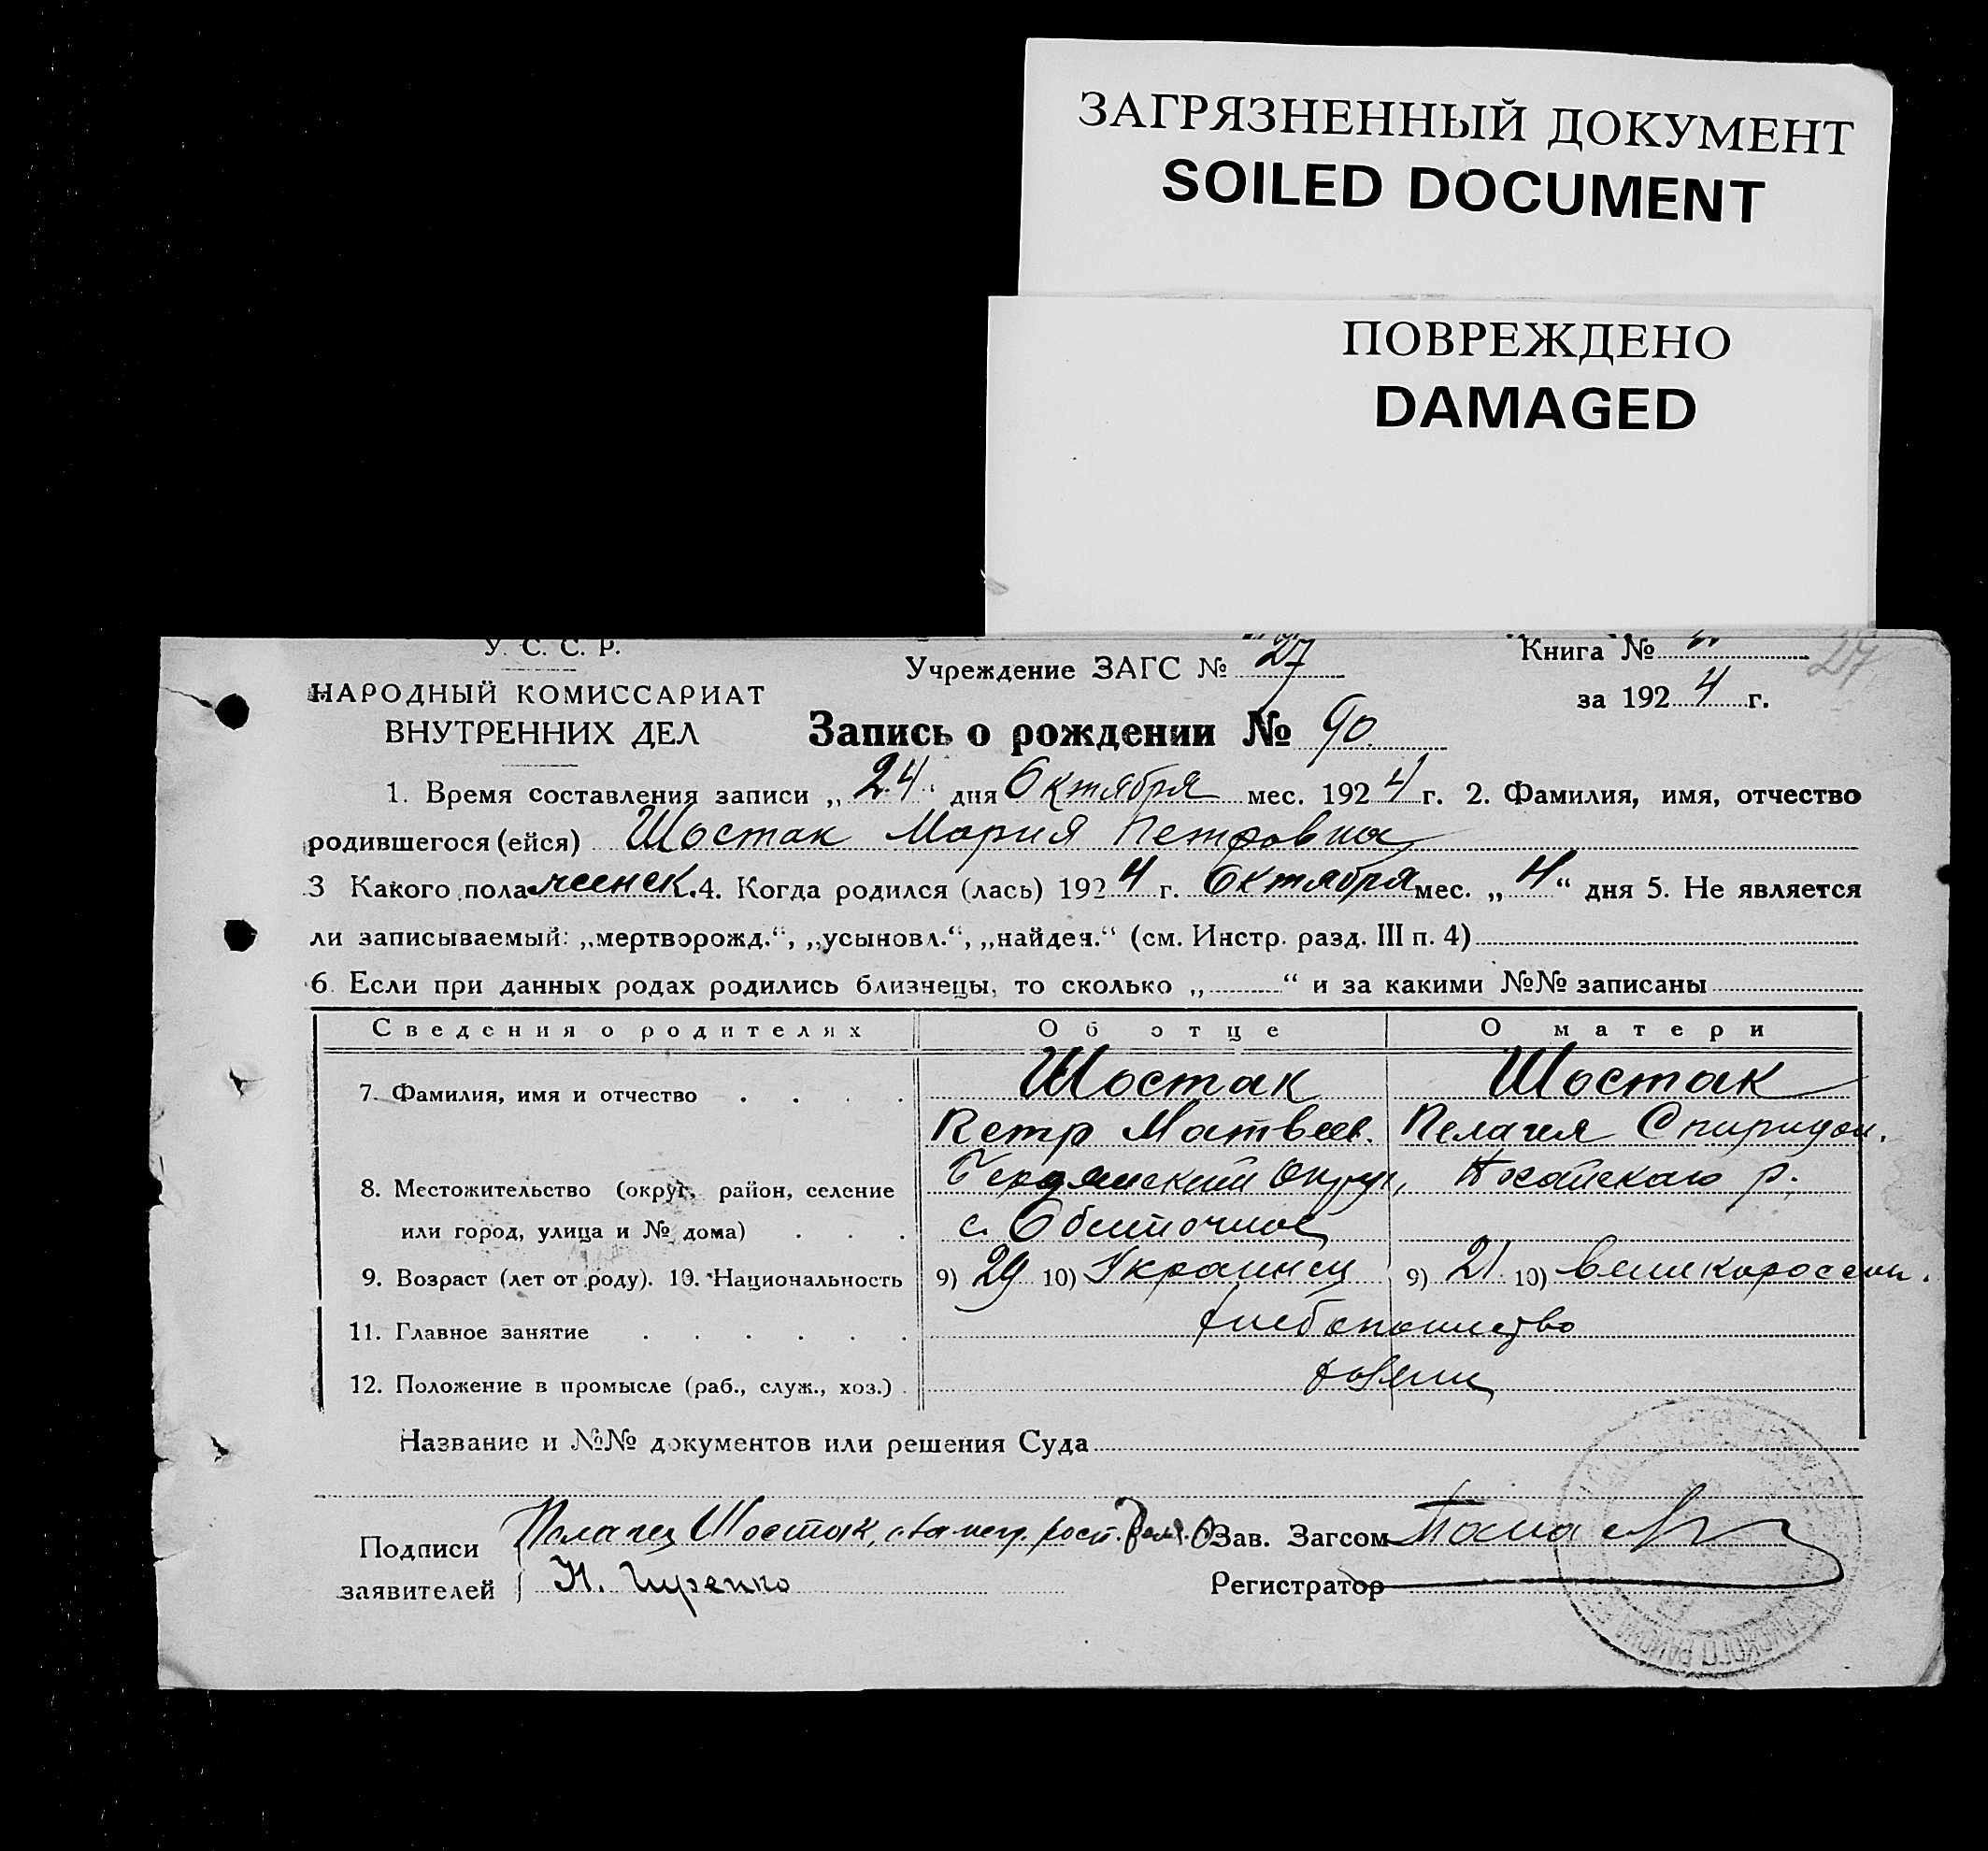 ЗАГРЯЗНЕННЫЙ ДОКУМЕНТ
SOILED DOCUMENT
ПОВРЕЖДЕНО
DAMAGED
У. С. С. Р.
НАРОДНЫЙ КОМИССАРИАТ
ВНУТРЕННИХ ДЕЛ
Учреждение ЗАГС № 27
Книга №
27
за 1924 г.
Запись о рождении № 90
1. Время составления записи „24“ дня Октября мес. 1924 г. 2. Фамилия, имя, отчество
родившегося (ейся) Шостак Мария Петровна
3 Какого пола женск. 4. Когда родился (лась) 1924 г. Октября мес. „4“ дня 5. Не является
ли записываемый: „мертворожд.“, „усыновл.“, „найден.“ (см. Инстр. разд. III п. 4)
6. Если при данных родах родились близнецы, то сколько „ “ и за какими №№ записаны
Сведения о родителях Об отце О матери
7. Фамилия, имя и отчество Шостак Шостак
Петр Матвеев. Пелагея Спиридон.
8. Местожительство (округ, район, селение Бердянский Округ, Ногайского р.
или город, улица и № дома) с. Обиточное
9. Возраст (лет от роду). 10. Национальность 9) 29 10) Украинец 9) 21 10) великоросси.
11. Главное занятие хлебопашество
12. Положение в промысле (раб., служ., хоз.) хозяин
Название и №№ документов или решения Суда
Подписи Пелагея Шостак, Зав. Загсом
заявителей Регистратор